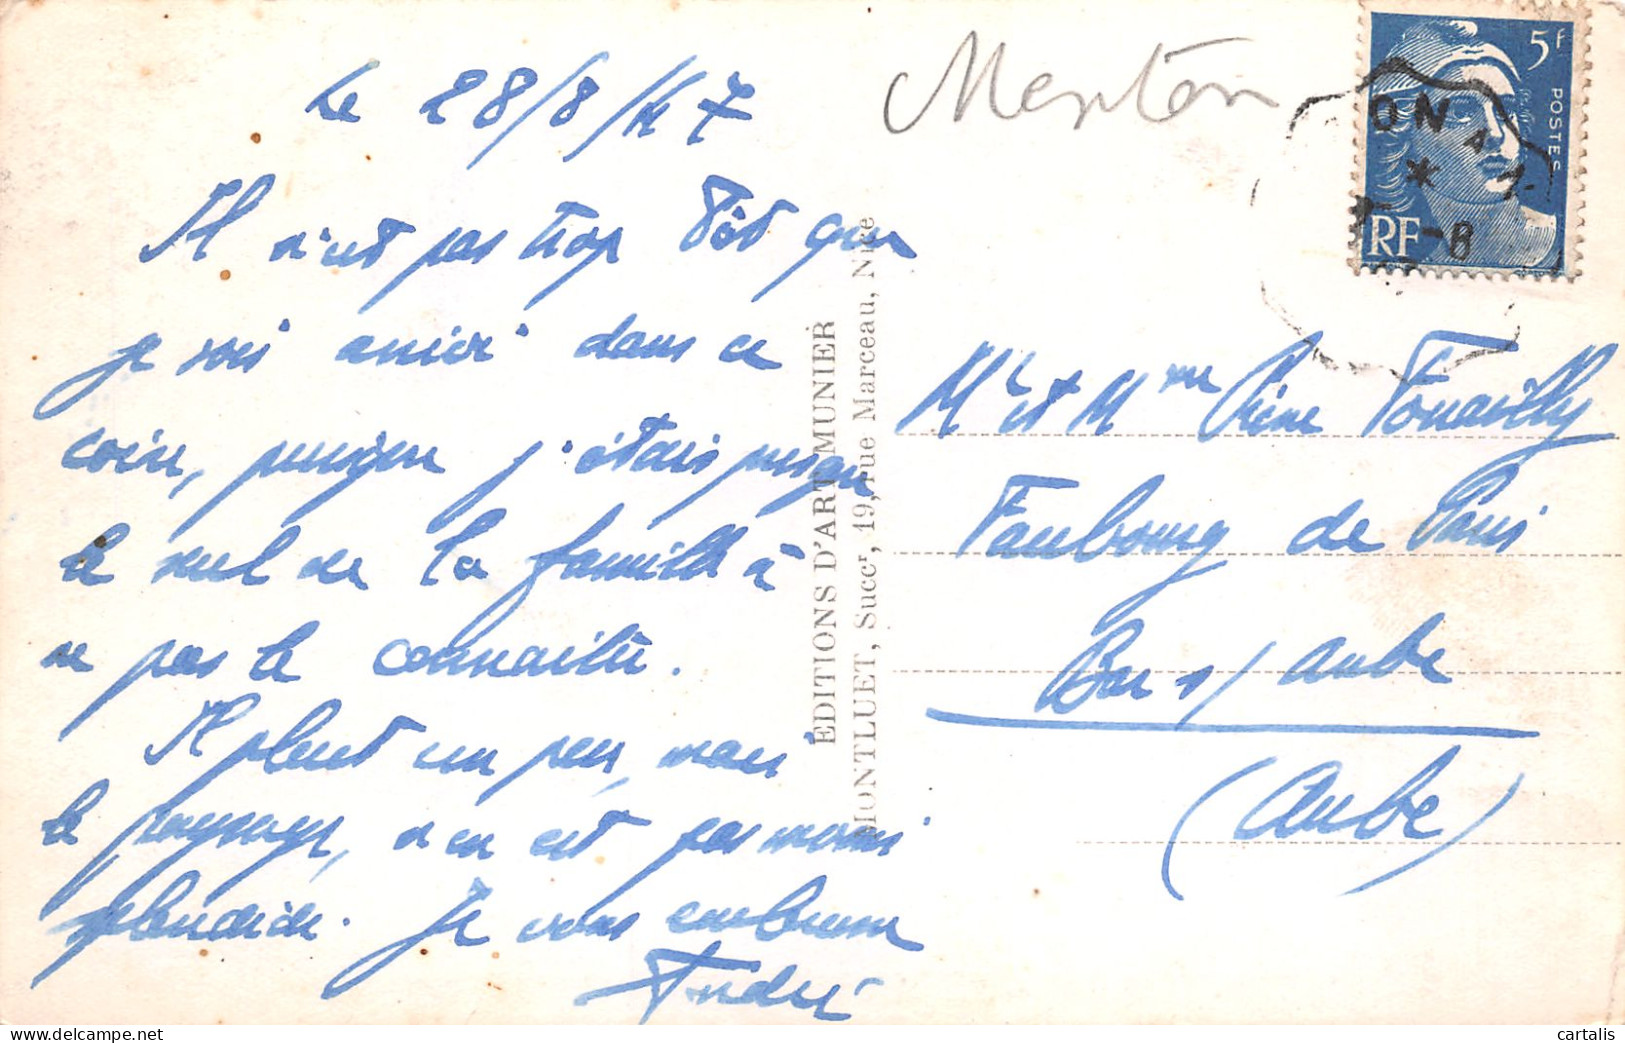 Le 28/8/47
Il n'est pas trop tôt que
je sois arrivé dans ce
coin, puisque j'étais jusque
le seul de la famille à
ne pas le connaître.
Il pleut un peu, mais
le paysage, n'en est pas moins
splendide. Je vous embrasse
André
EDITIONS D'ART MUNIER
MONTLUET, Succr, 19, rue Marceau, Nice
Menton
5F
POSTES
RF
ON A
-8
Mr et Mme
Faubourg de Paris
Bar s/ Aube
(Aube)
cartalis.delcampe.net